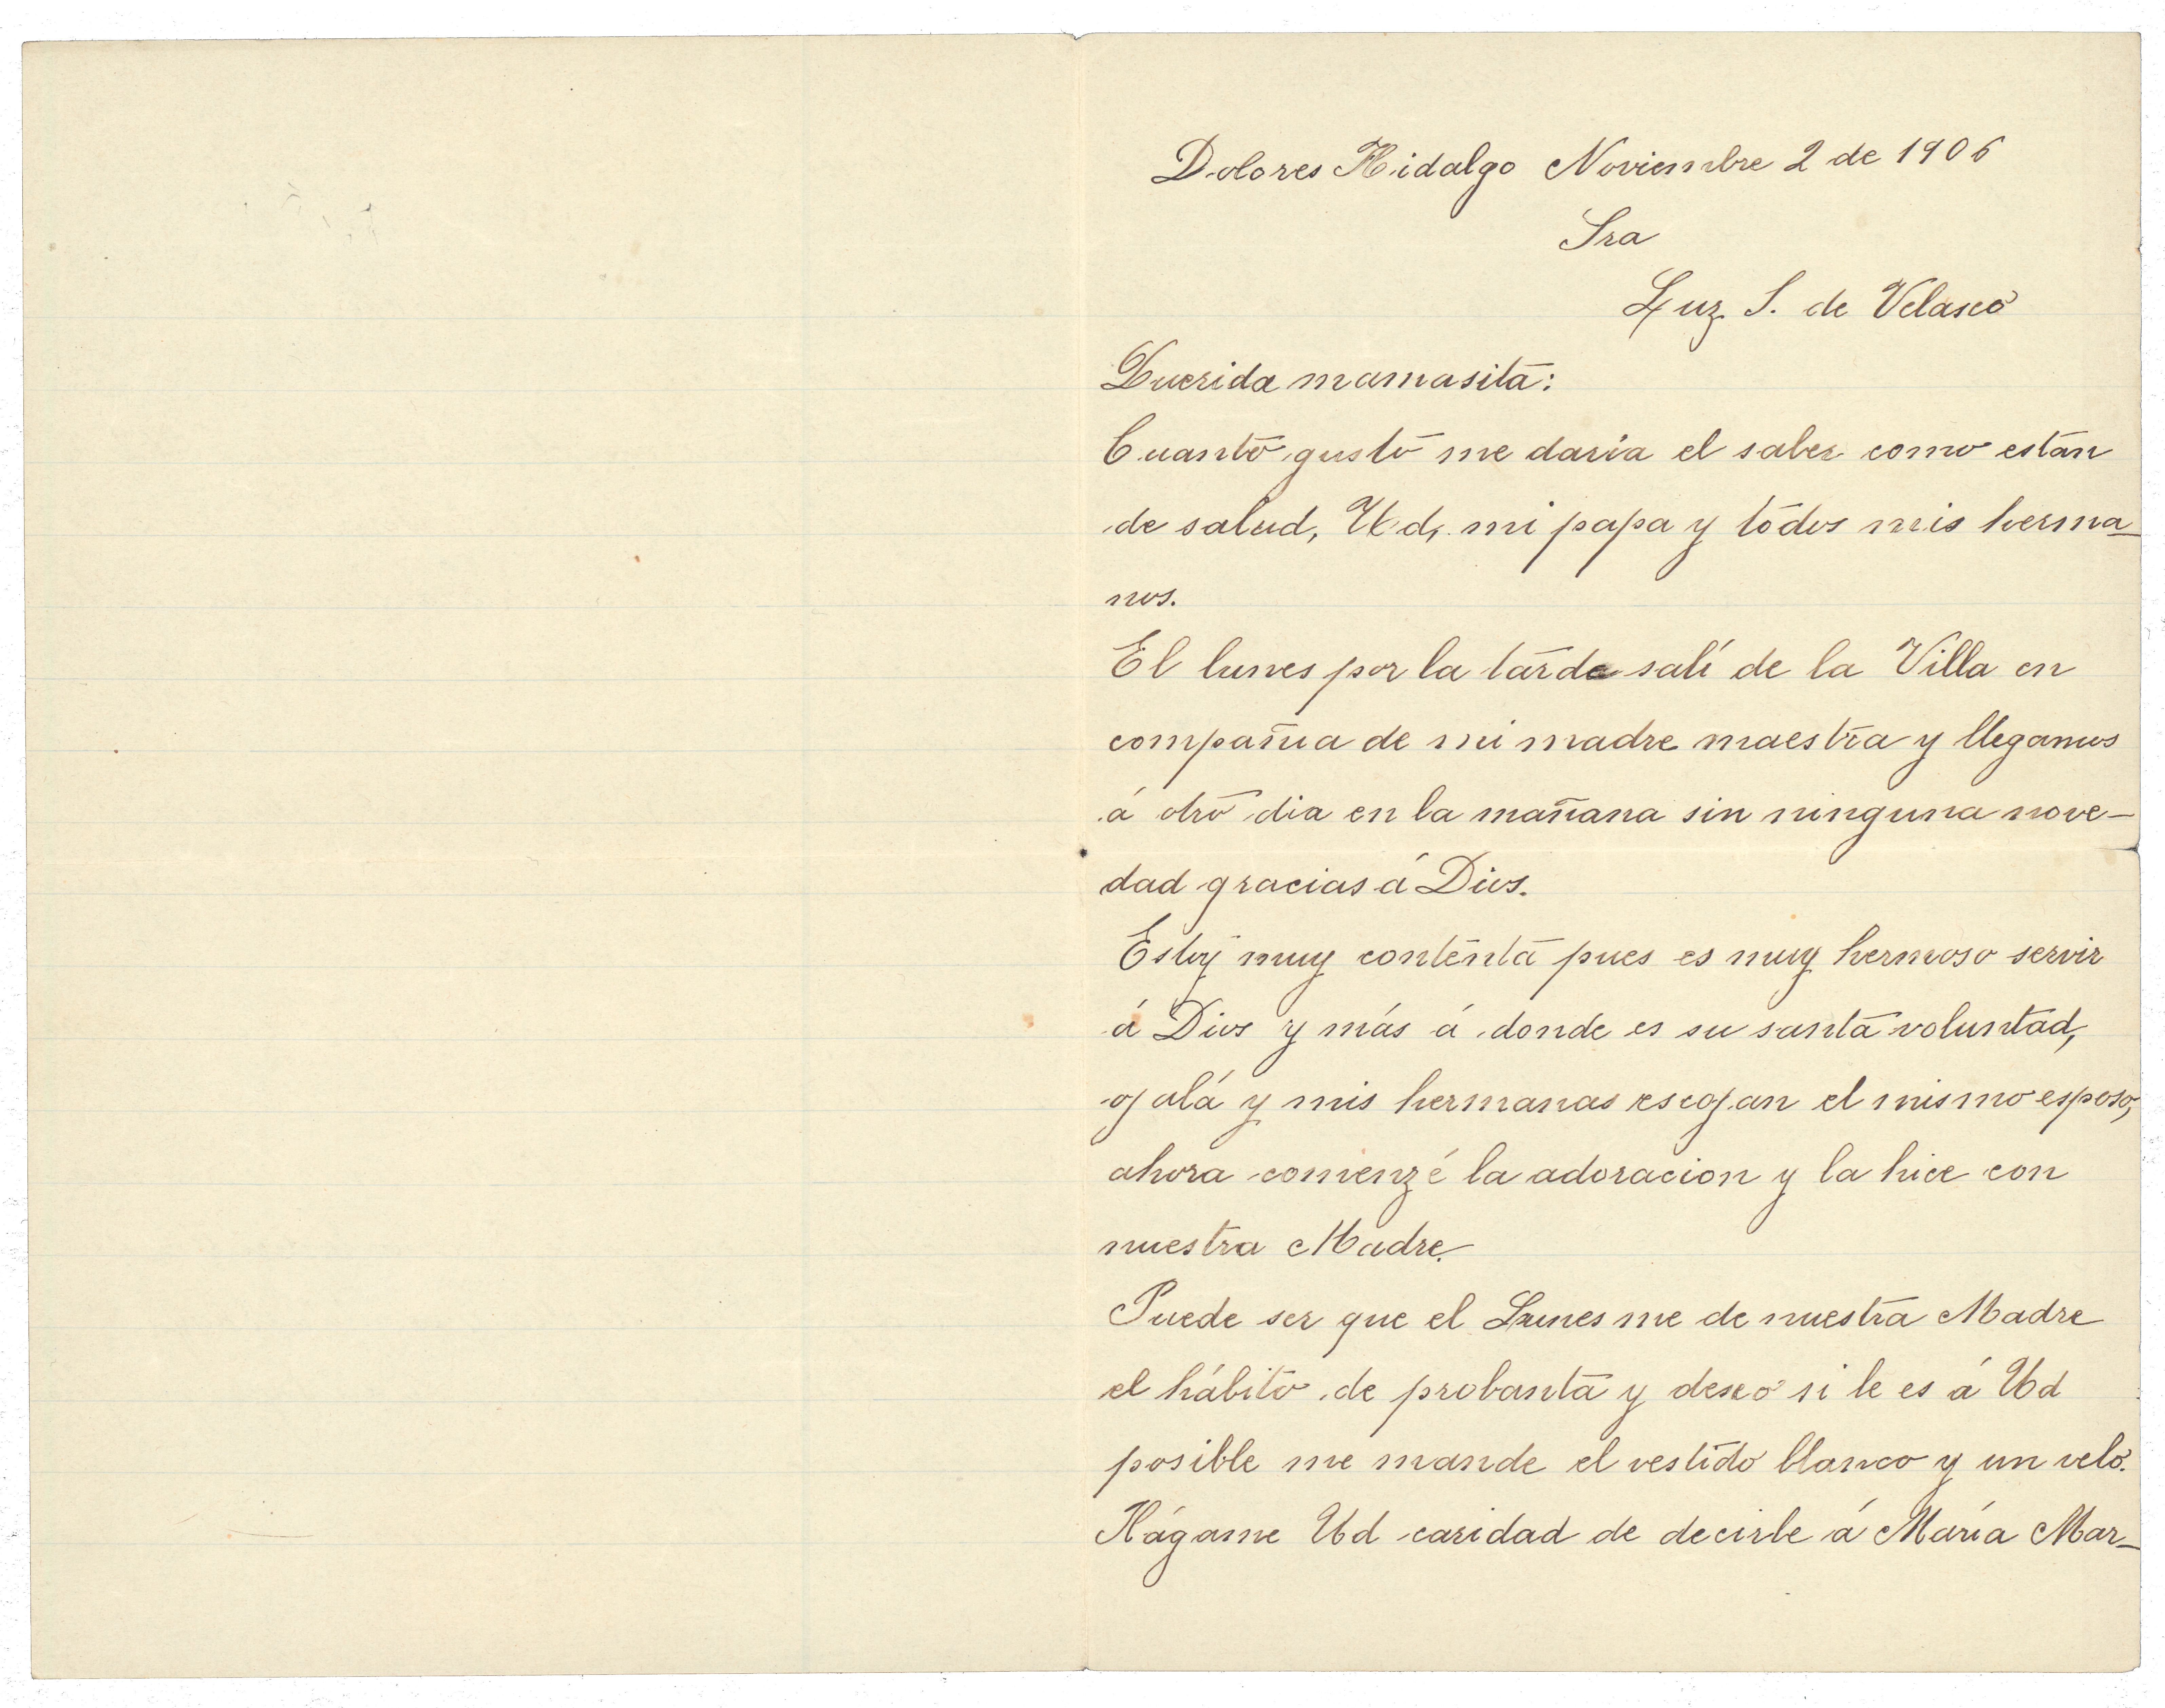 Dolores Hidalgo Noviembre 2 de 1906
Sra
Luz S. de Velasco
Querida mamasita:
Cuanto gusto me daria el saber como están
de salud, Ud, mi papa y todos mis herma-
nos.
El lunes por la tarde salí de la Villa en
compañia de mi madre maestra y llegamos
á otro dia en la mañana sin ninguna nove-
dad gracias á Dios.
Estoy muy contenta pues es muy hermoso servir
á Dios y más á donde es su santa voluntad,
ojalá y mis hermanas escojan el mismo esposo,
ahora comenzé la adoracion y la hice con
nuestra Madre.
Puede ser que el Lunes me de nuestra Madre
el hábito de probanta y deseo si le es á Ud
posible me mande el vestido blanco y un velo.
Hágame Ud caridad de decirle á María Mar-